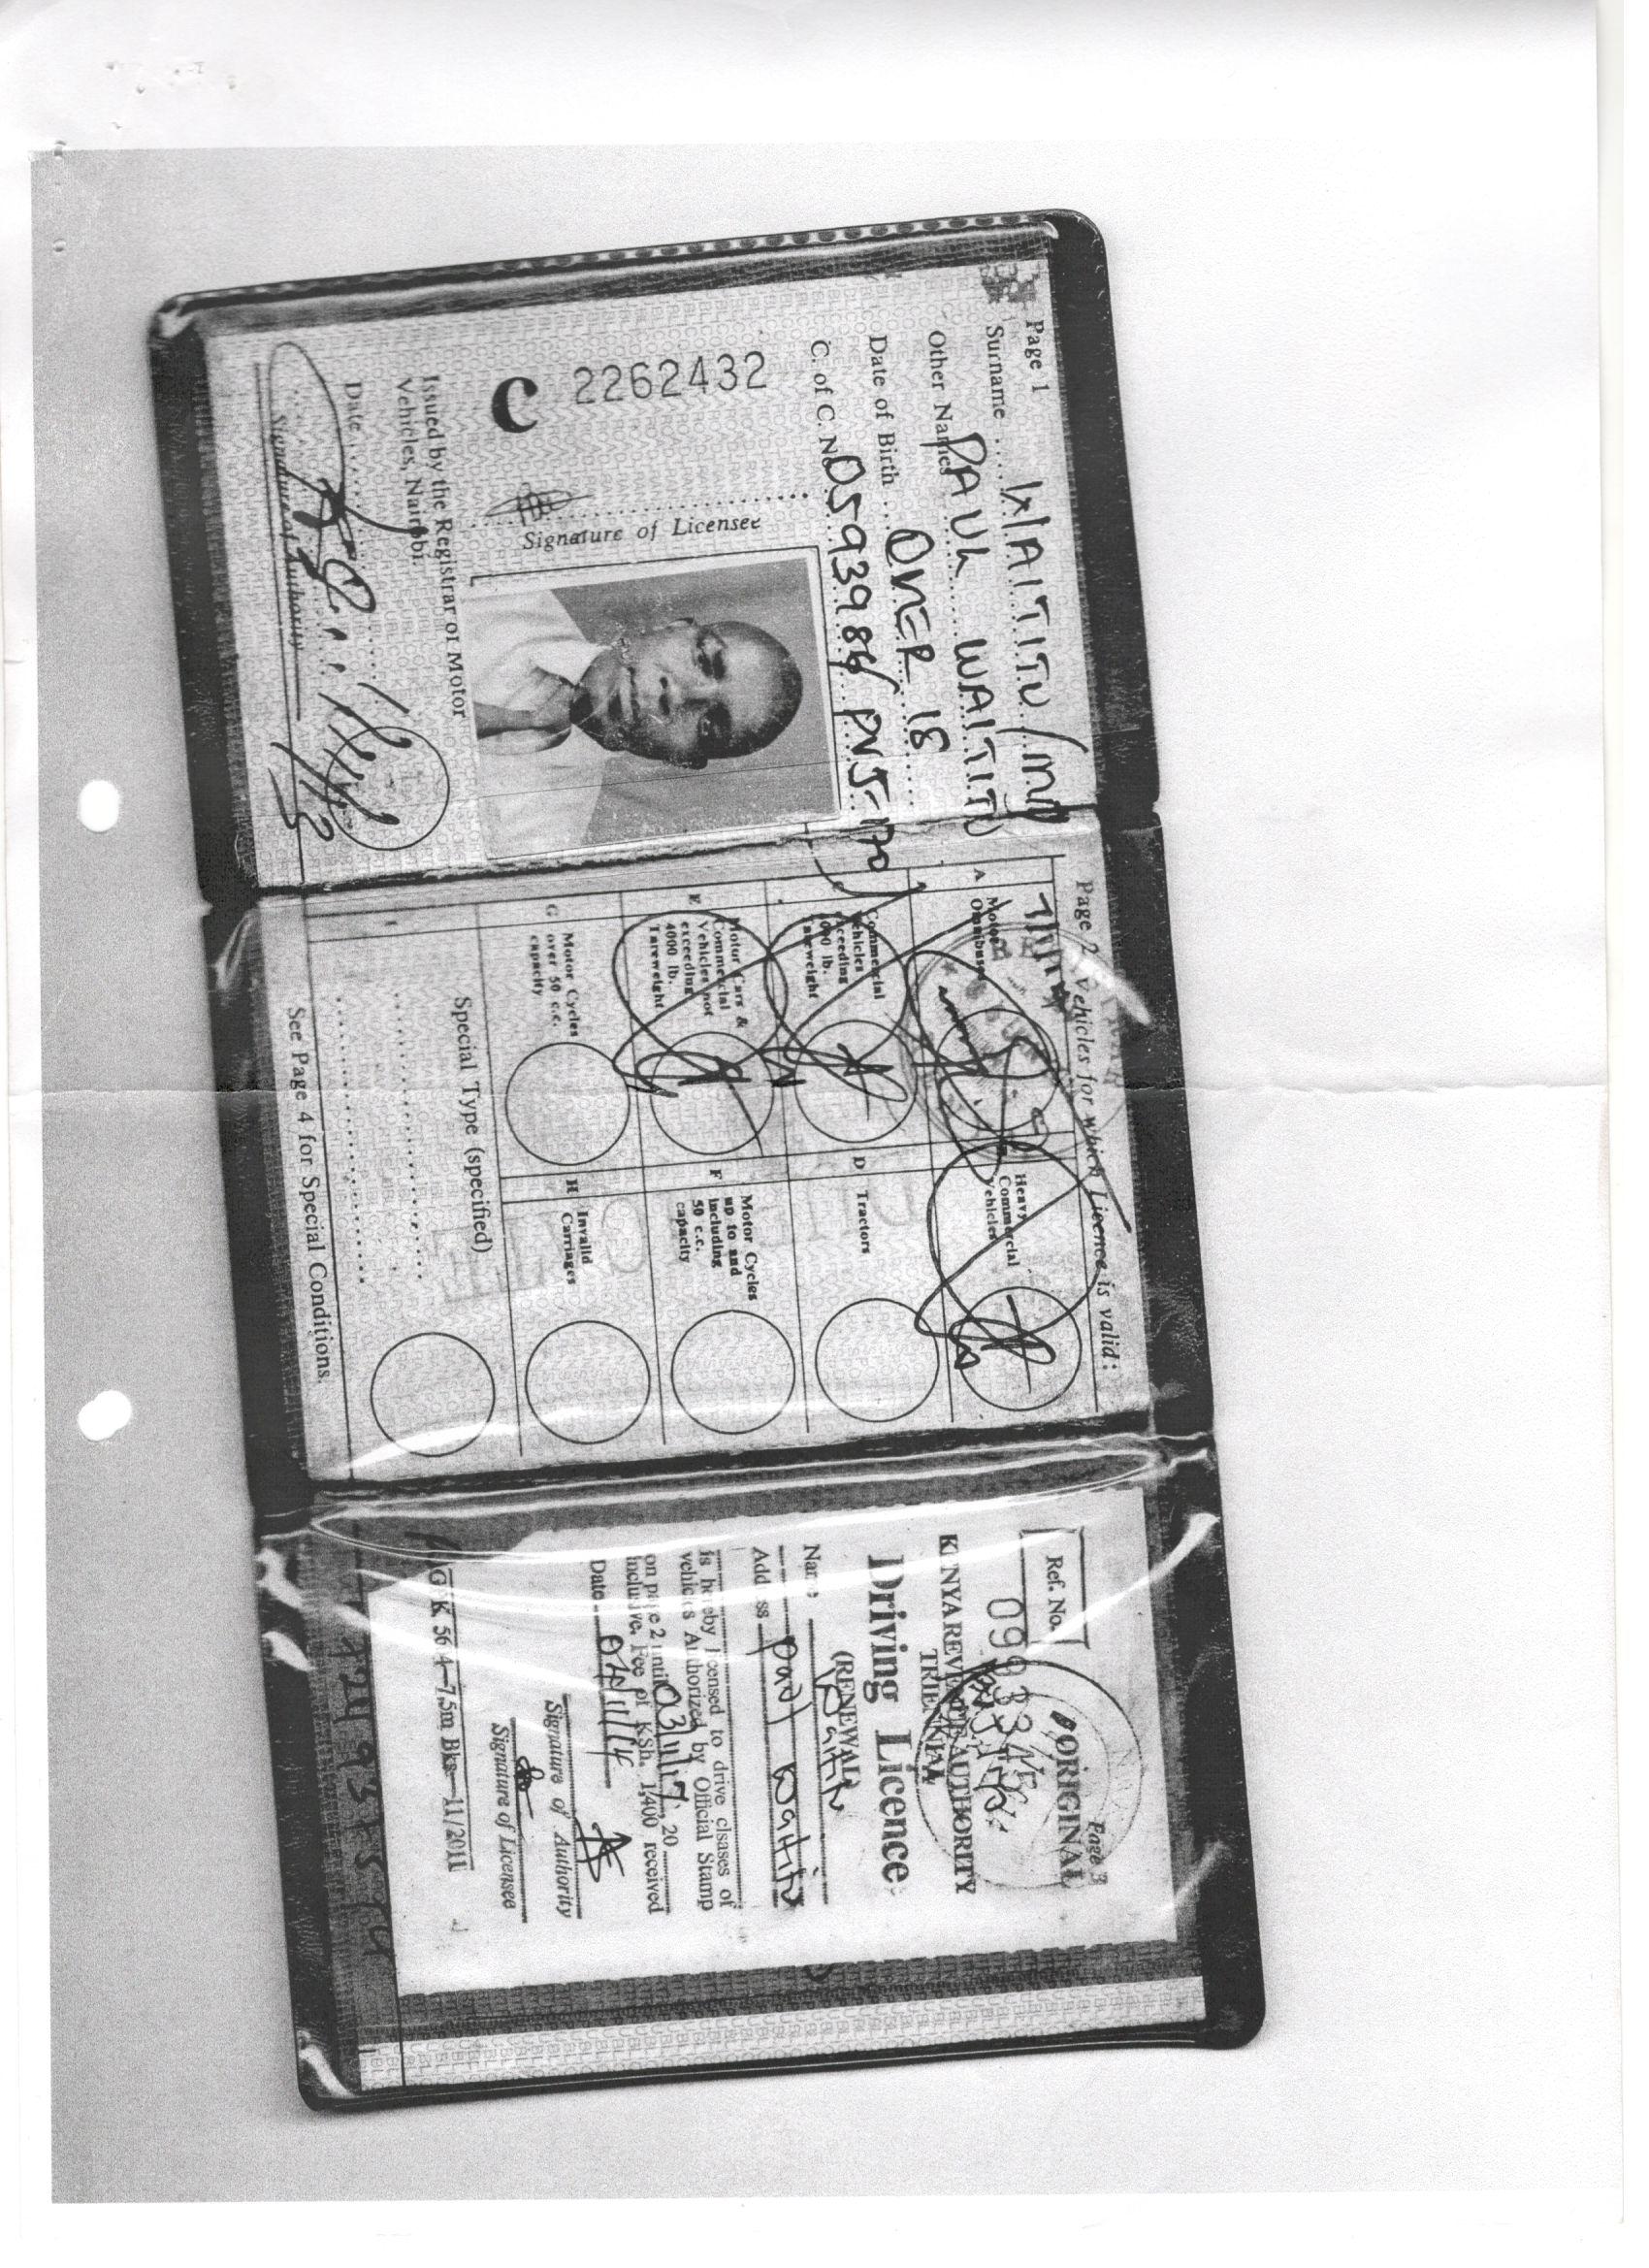 Page 1
Surname WAITITU/Md
Other Names PAUL WAITITU
Date of Birth OVER 18
C. of C. No
C 2262432
Signature of Licensee
Issued by the Registrar of Motor
Vehicles, Nairobi.
Date
Signature of Authority
Page 2 Vehicles for which Licence is valid:
A Motor Omnibuses
Heavy Commercial Vehicles
Commercial Vehicles exceeding 4000 lb. Tareweight
D Tractors
E Motor Cars & Commercial Vehicles not exceeding 4000 lb. Tareweight
F Motor Cycles up to and including 50 c.c. capacity
G Motor Cycles over 50 c.c. capacity
H Invalid Carriages
I Special Type (specified)
See Page 4 for Special Conditions.
Page 3
Ref. No. ORIGINAL
KENYA REVENUE AUTHORITY
TRIENNIAL
Driving Licence
(RENEWAL)
Name Waititu
Address Paul Waititu
is hereby licensed to drive clsases of
vehicles Authorized by Official Stamp
on page 2 until 03/11/17, 20
inclusive. Fee of KSh. 1,400 received
Date 04/11/14
Signature of Authority
Signature of Licensee
7.5m Bks—11/2011